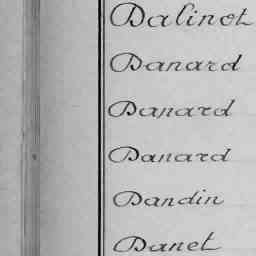 Dalinot
Danard
Danard
Danard
Dandin
Danet